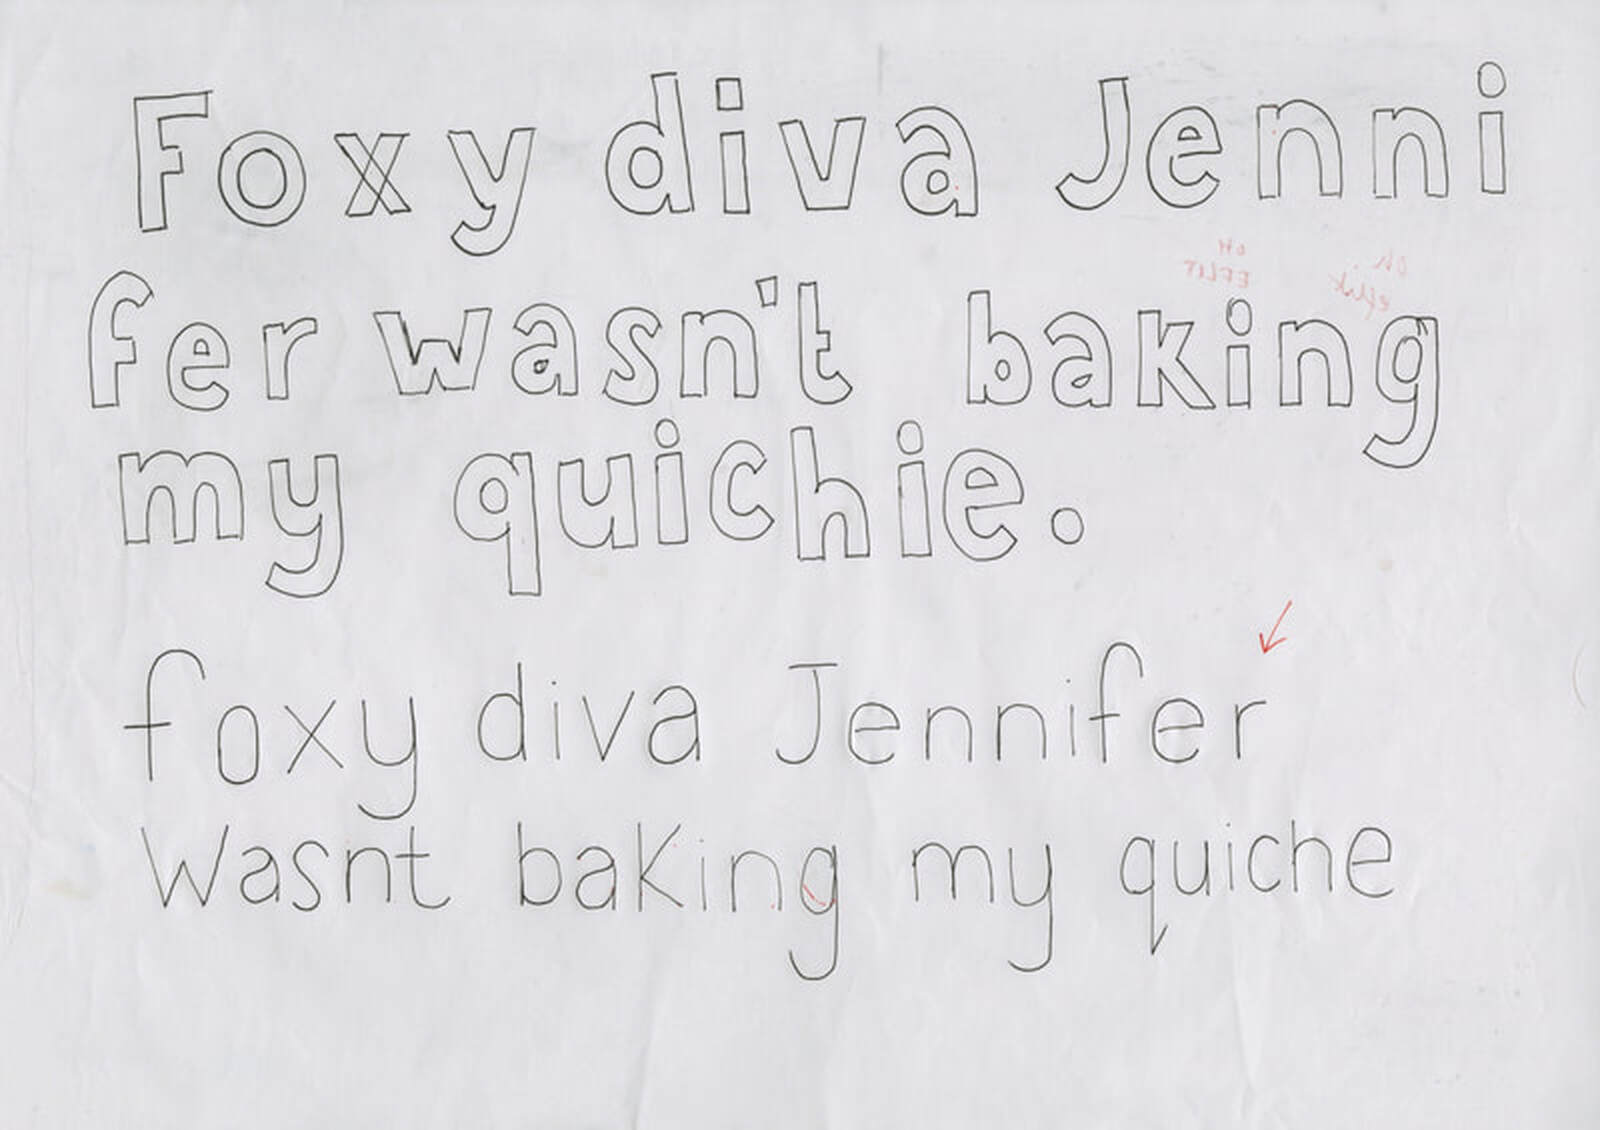 Foxy diva Jenni
fer wasn't baking
my quichie.
foxy diva Jennifer
Wasnt baking my quiche